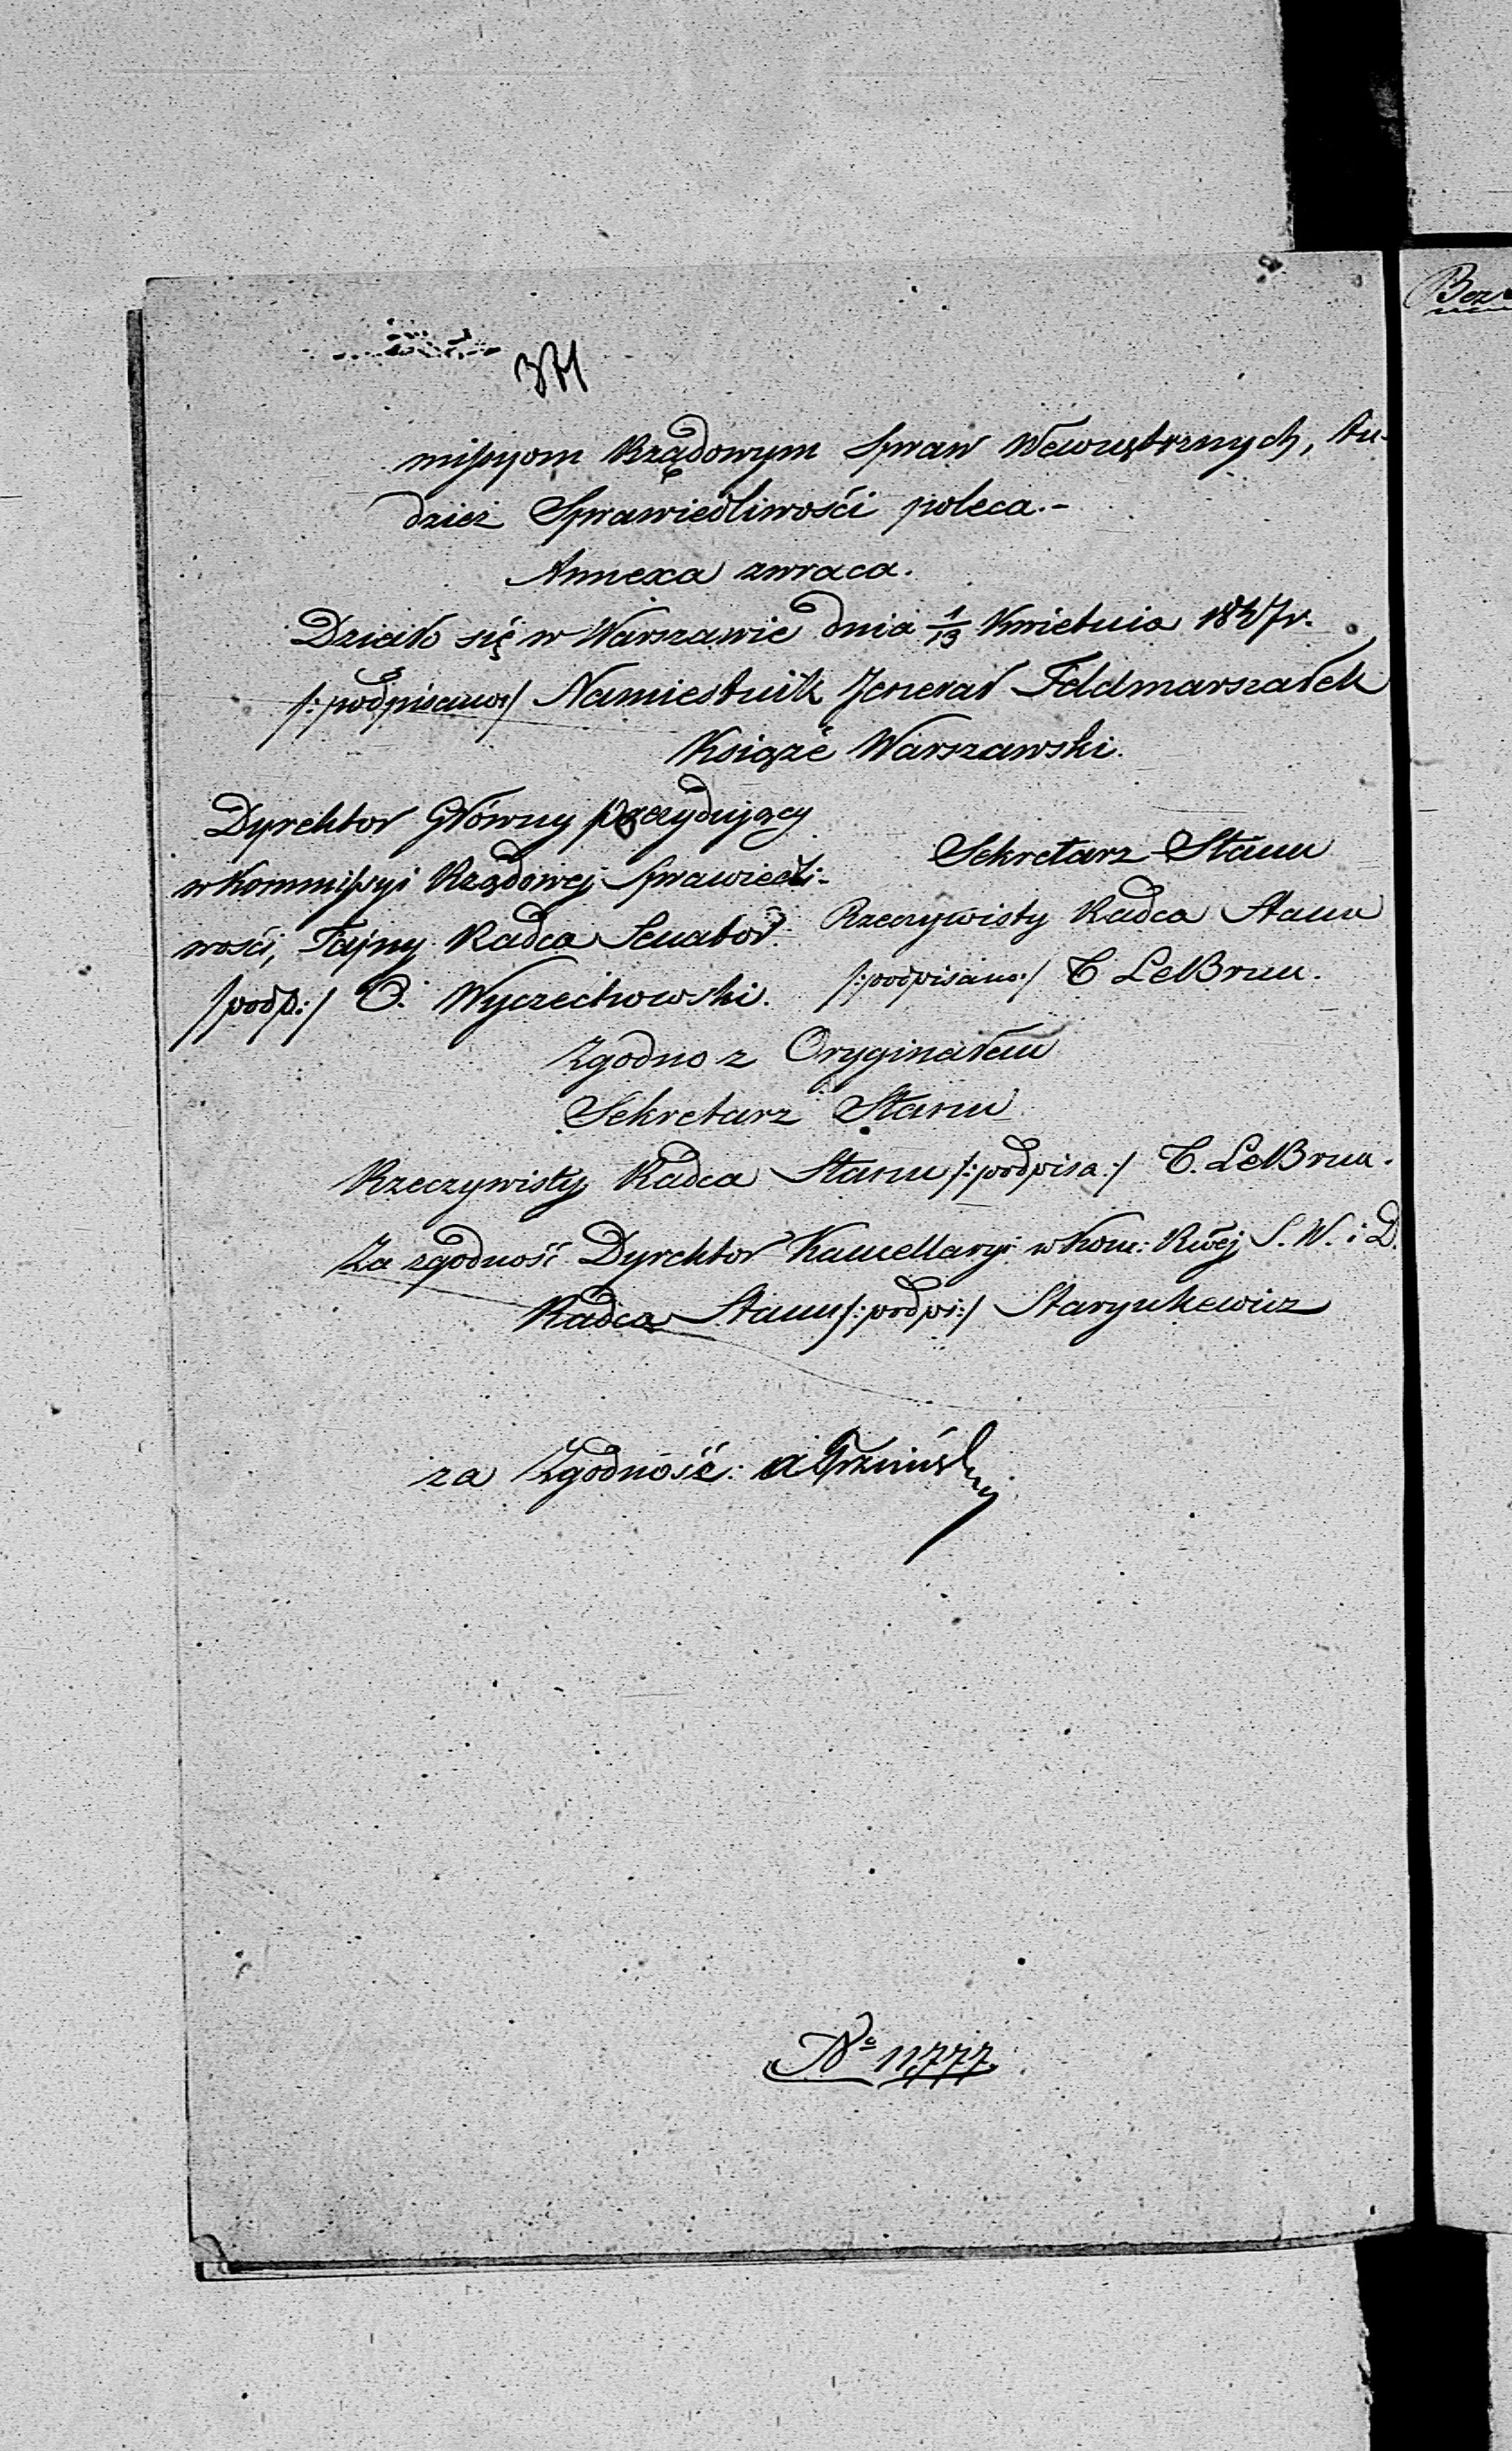 371
missyom Rządowym Spraw Wewnętrznych, tu-
dzież Sprawiedliwości poleca.-
Annexa zwraca.
Działo się w Warszawie dnia 1/13 Kwietnia 1847 r.
/:podpisano:/ Namiestnik Jenerał Feldmarszałek
Książę Warszawski.
Dyrektor Główny prezydujący
w Kommissyi Rządowej Sprawiedli-
wości, Tajny Radca Senator.
/podp:/ O. Wyczechowski.
Sekretarz Stanu
Rzeczywisty Radca Stanu
/:podpisano:/ T LeBrun.
Zgodno z Oryginałem
Sekretarz Stanu
Rzeczywisty Radca Stanu /:podpisa:/ T. LeBrun.
Za zgodność Dyrektor Kancellaryi w Kom: Rwéj S. W. i D.
Radca Stanu /:podpi:/ Starynkewicz
za Zgodność:
No 11,777
Bez